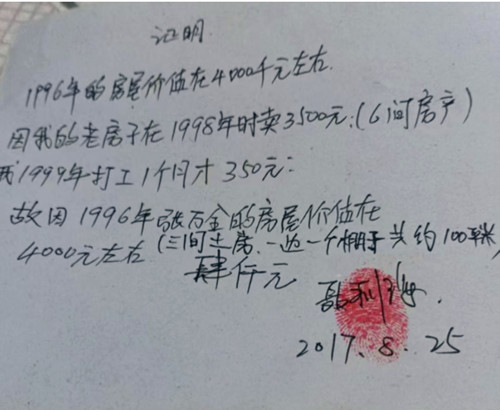 证明.
1996年的房屋价值在4000千元左右.
因我的老房子在1998年时卖3500元.(6间房产)
我1999年打工1个月才350元.
故因1996年张万金的房屋价值在
4000元左右(三间土房.一边一个棚子共约100平米)
肆仟元
2017.8.25